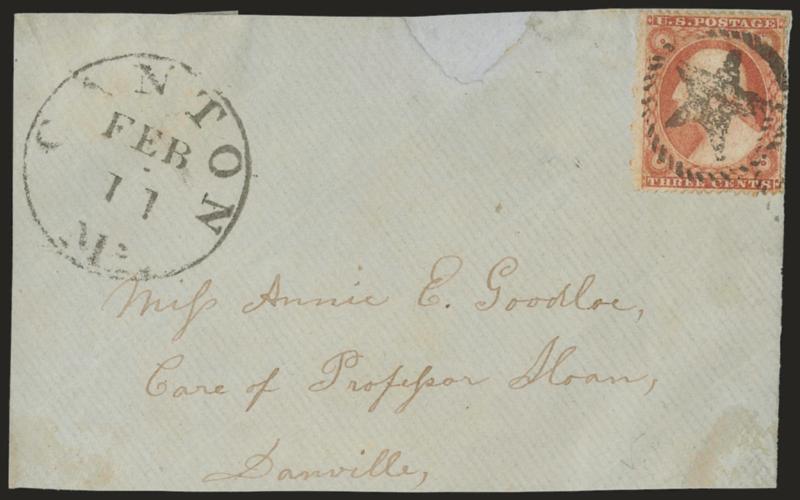 CANTON
FEB
11
Mi.
U.S. POSTAGE
THREE CENTS
Miss Annie E. Goodloe,
Care of Professor Sloan,
Danville,